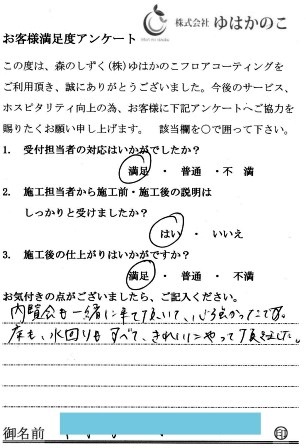 株式会社 ゆはかのこ
お客様満足度アンケート
この度は、森のしずく(株)ゆはかのこフロアコーティングを
ご利用頂き、誠にありがとうございました。今後のサービス、
ホスピタリティ向上の為、お客様に下記アンケートへご協力を
賜りたくお願い申し上げます。 該当欄を○で囲って下さい。
1. 受付担当者の対応はいかがでしたか?
満足 ・ 普通 ・不 満
2. 施工担当者から施工前・施工後の説明は
しっかりと受けましたか?
はい ・ いいえ
3. 施工後の仕上がりはいかがですか?
満足 ・ 普通 ・ 不満
お気付きの点がございましたら、ご記入ください。
内覧会も一緒に来て頂いて、心強かったです。
床も、水回りもすべて、きれいにやって頂きました。
御名前 印